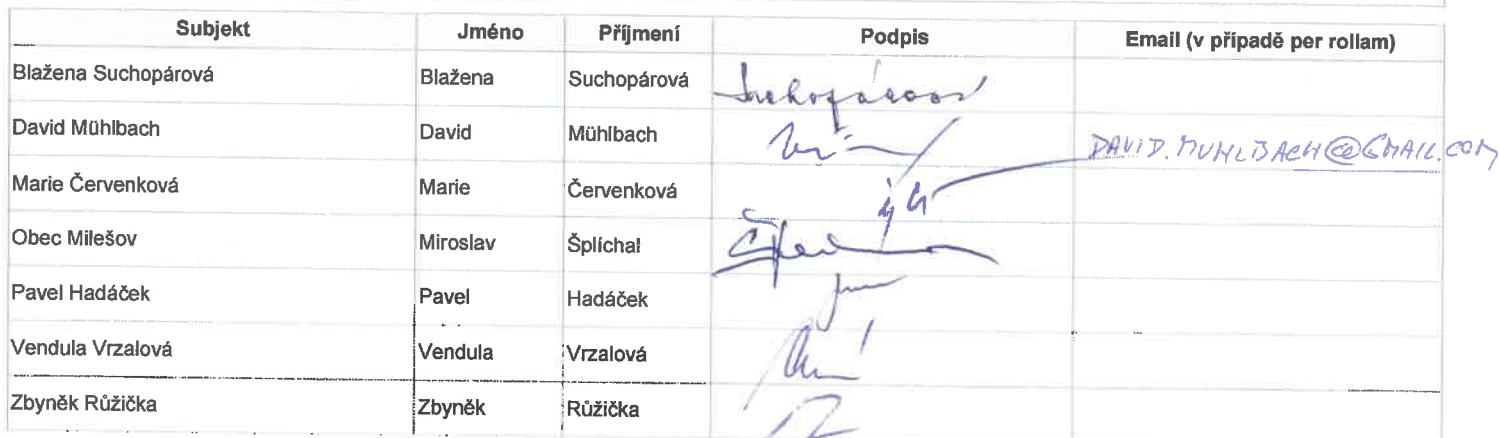 Subjekt Jméno Příjmení Podpis Email (v případě per rollam)
Blažena Suchopárová Blažena Suchopárová Suchopárová
David Mühlbach David Mühlbach DAVID.MUHLBACH@GMAIL.COM
Marie Červenková Marie Červenková
Obec Milešov Miroslav Šplíchal
Pavel Hadáček Pavel Hadáček
Vendula Vrzalová Vendula Vrzalová
Zbyněk Růžička Zbyněk Růžička